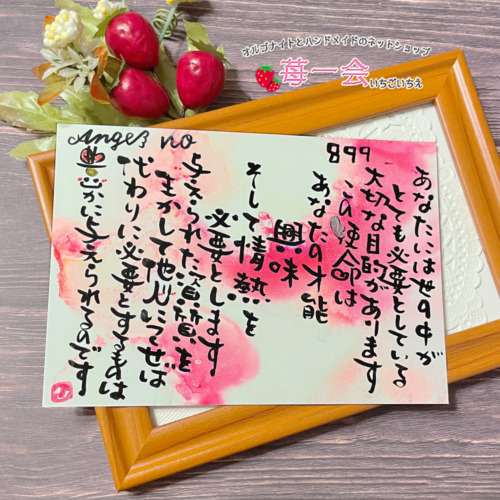 オルゴナイトとハンドメイドのネットショップ
苺一会
いちごいちえ
Angel no
899
あなたには世の中が
とても必要としている
大切な目的があります
この使命は
あなたの才能
興味
そして情熱を
必要とします
与えられた資質を
生かして他人につくせば
代わりに必要とするものは
豊かに与えられるのです
ひ